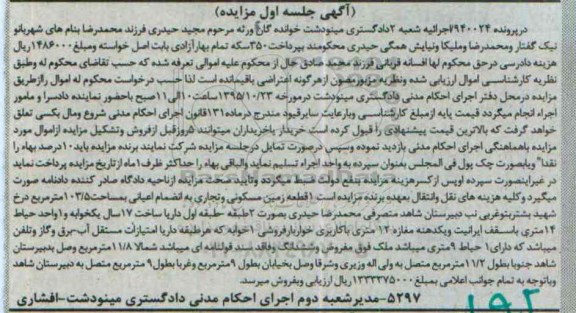 (آگهی جلسه اول مزایده)
درپرونده ۹۴۰۰۲۴/اجرائیه شعبه ۲دادگستری مینودشت خوانده گان ورثه مرحوم مجید حیدری فرزند محمدرضا بنام های شهربانو
نیک گفتار ومحمدرضا وملیکا ونیایش همگی حیدری محکومند بپرداخت ۳۵۰سکه تمام بهارآزادی بابت اصل خواسته ومبلغ۱۴۸۶۰۰۰ریال
هزینه دادرسی درحق محکوم لها افسانه قربانی فرزند محمد صادق حال از محکوم علیه اموالی تعرفه شده که حسب تقاضای محکوم له وطبق
نظریه کارشناسی اموال ارزیابی شده ونظریه مزبورمصون ازهرگونه اعتراضی باقیمانده است لذا حسب درخواست محکوم له اموال راازطریق
مزایده درمحل دفتر اجرای احکام مدنی دادگستری مینودشت درمورخه ۱۳۹۵/۱۰/۲۳ساعت۱۰الی۱۱صبح باحضور نماینده دادسرا و مامور
اجراء انجام میگردد قیمت پایه ازمبلغ کارشناسی وبارعایت سایرقیود مندرج درماده۱۳۱قانون اجرای احکام مدنی شروع ومال بکسی تعلق
خواهد گرفت که بالاترین قیمت پیشنهادی را قبول کرده است خریدار یاخریداران میتوانند ۵روزقبل ازفروش وتشکیل مزایده ازاموال مورد
مزایده باهماهنگی اجرای احکام مدنی بازدید نموده وسپس درصورت تمایل درجلسه مزایده شرکت نمایند برنده مزایده باید۱۰درصد بهاء را
نقداً ویابصورت چک پول فی المجلس بعنوان سپرده به واحد اجراء تسلیم نماید والباقی بهاء را حداکثر ظرف۱ماه ازتاریخ مزایده پرداخت نماید
در غیراینصورت سپرده اوپس ازکسرهزینه مزایده بنفع دولت ضبط میگردد وتایید صحت مزایده ازناحیه دادگاه صادر کننده دادنامه صورت
میگیرد وکلیه هزینه های نقل وانتقال بعهده برنده مزایده است ۱قطعه زمین مسکونی وتجاری به انضمام اعیانی بمساحت۱۰۳/۵مترمربع درخ
شهید بشتربتوغربی نب دبیرستان شاهد متصرفی محمدرضا حیدری بصورت ۲طبقه طبقه اول دارپا ساخت ۱۷سال یکخوابه و۱واحد حیاط
۱۴متری باسقف ایرانیت ویکدهنه مغازه ۱۲ متری باکاربری خواربارفروشی ۱خوابه که هرطبقه دارپا امتیازات مستقل آب-برق وگاز وتلفن
میباشد که دارای۱ حیاط ۹متری میباشد ملک فوق مفروض وششدانگ وفاقد سند قولنامه ای میباشد شمالا ۱۱/۸مترمربع وصل بدبیرستان
شاهد جنوبا بطول ۱۱/۲مترمربع متصل به ولی اله وزیری وشرقا وصل بخیابان بطول ۹مترمربع وغربا بطول۹ مترمربع متصل به دبیرستان شاهد
وباتوجه به تمام جوانب اعلامی بمبلغ ۱۳۳۳۳۷۵۰۰۰ریال ارزیابی وبفروش میرسد.
۵۲۹۷-مدیرشعبه دوم اجرای احکام مدنی دادگستری مینودشت-افشاری